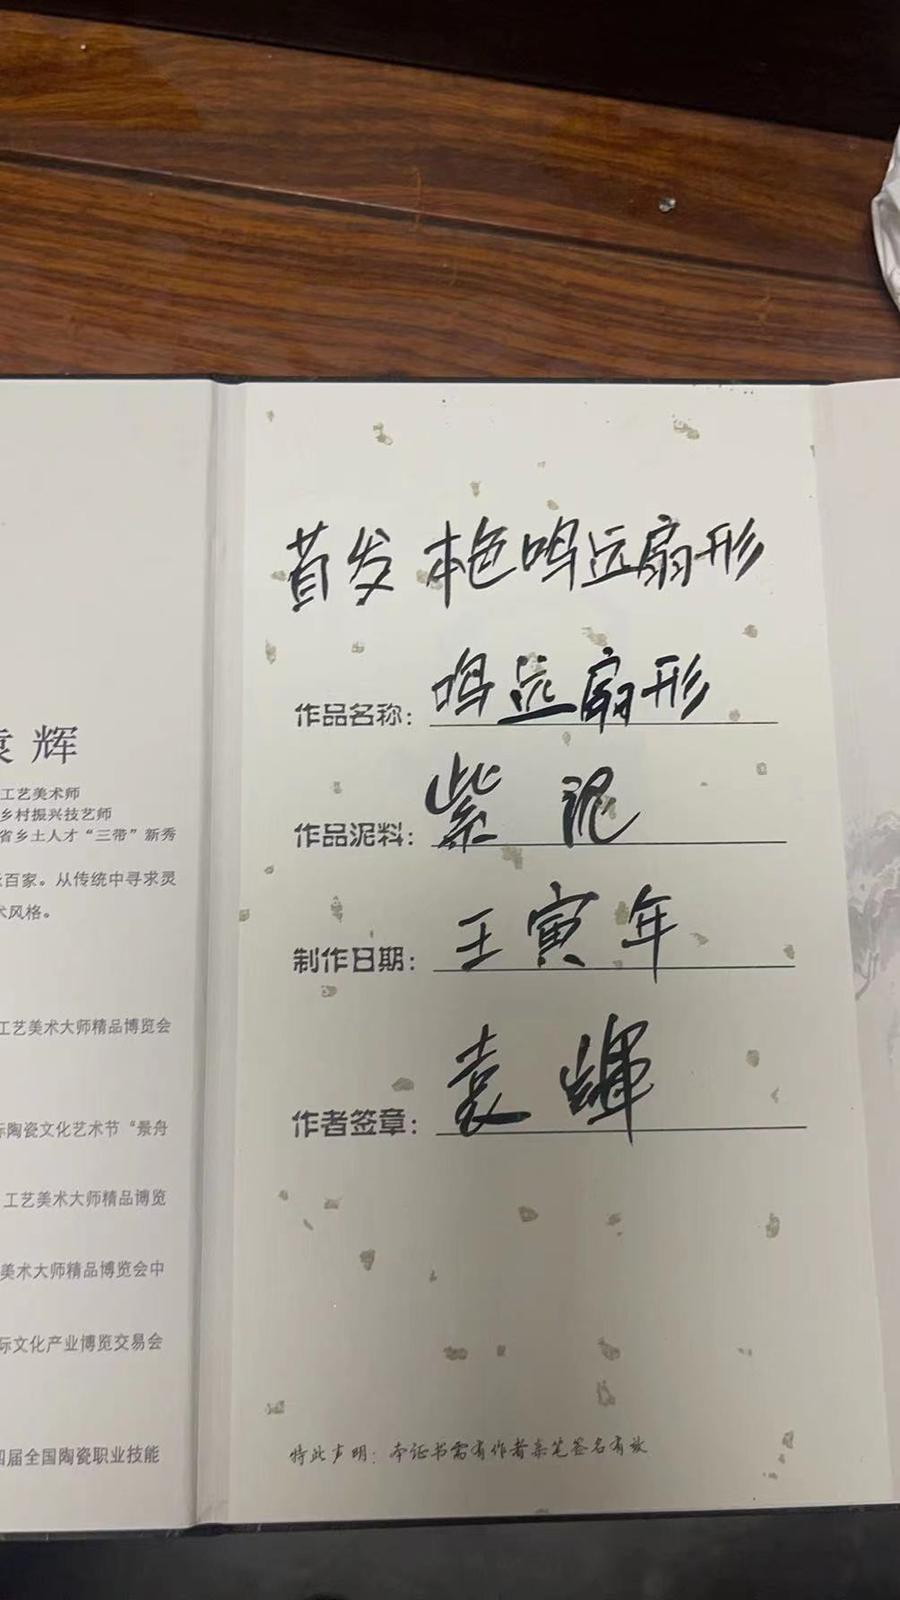 辉
工艺美术师
乡村振兴技艺师
省乡土人才“三带”新秀
百家。从传统中寻求灵
术风格。
工艺美术大师精品博览会
际陶瓷文化艺术节“景舟
工艺美术大师精品博览
美术大师精品博览会中
际文化产业博览交易会
四届全国陶瓷职业技能
首发 本色鸣远扇形
作品名称：鸣远扇形
作品泥料：紫泥
制作日期：壬寅年
作者签章：袁輝
特此声明：本证书需有作者亲笔签名有效